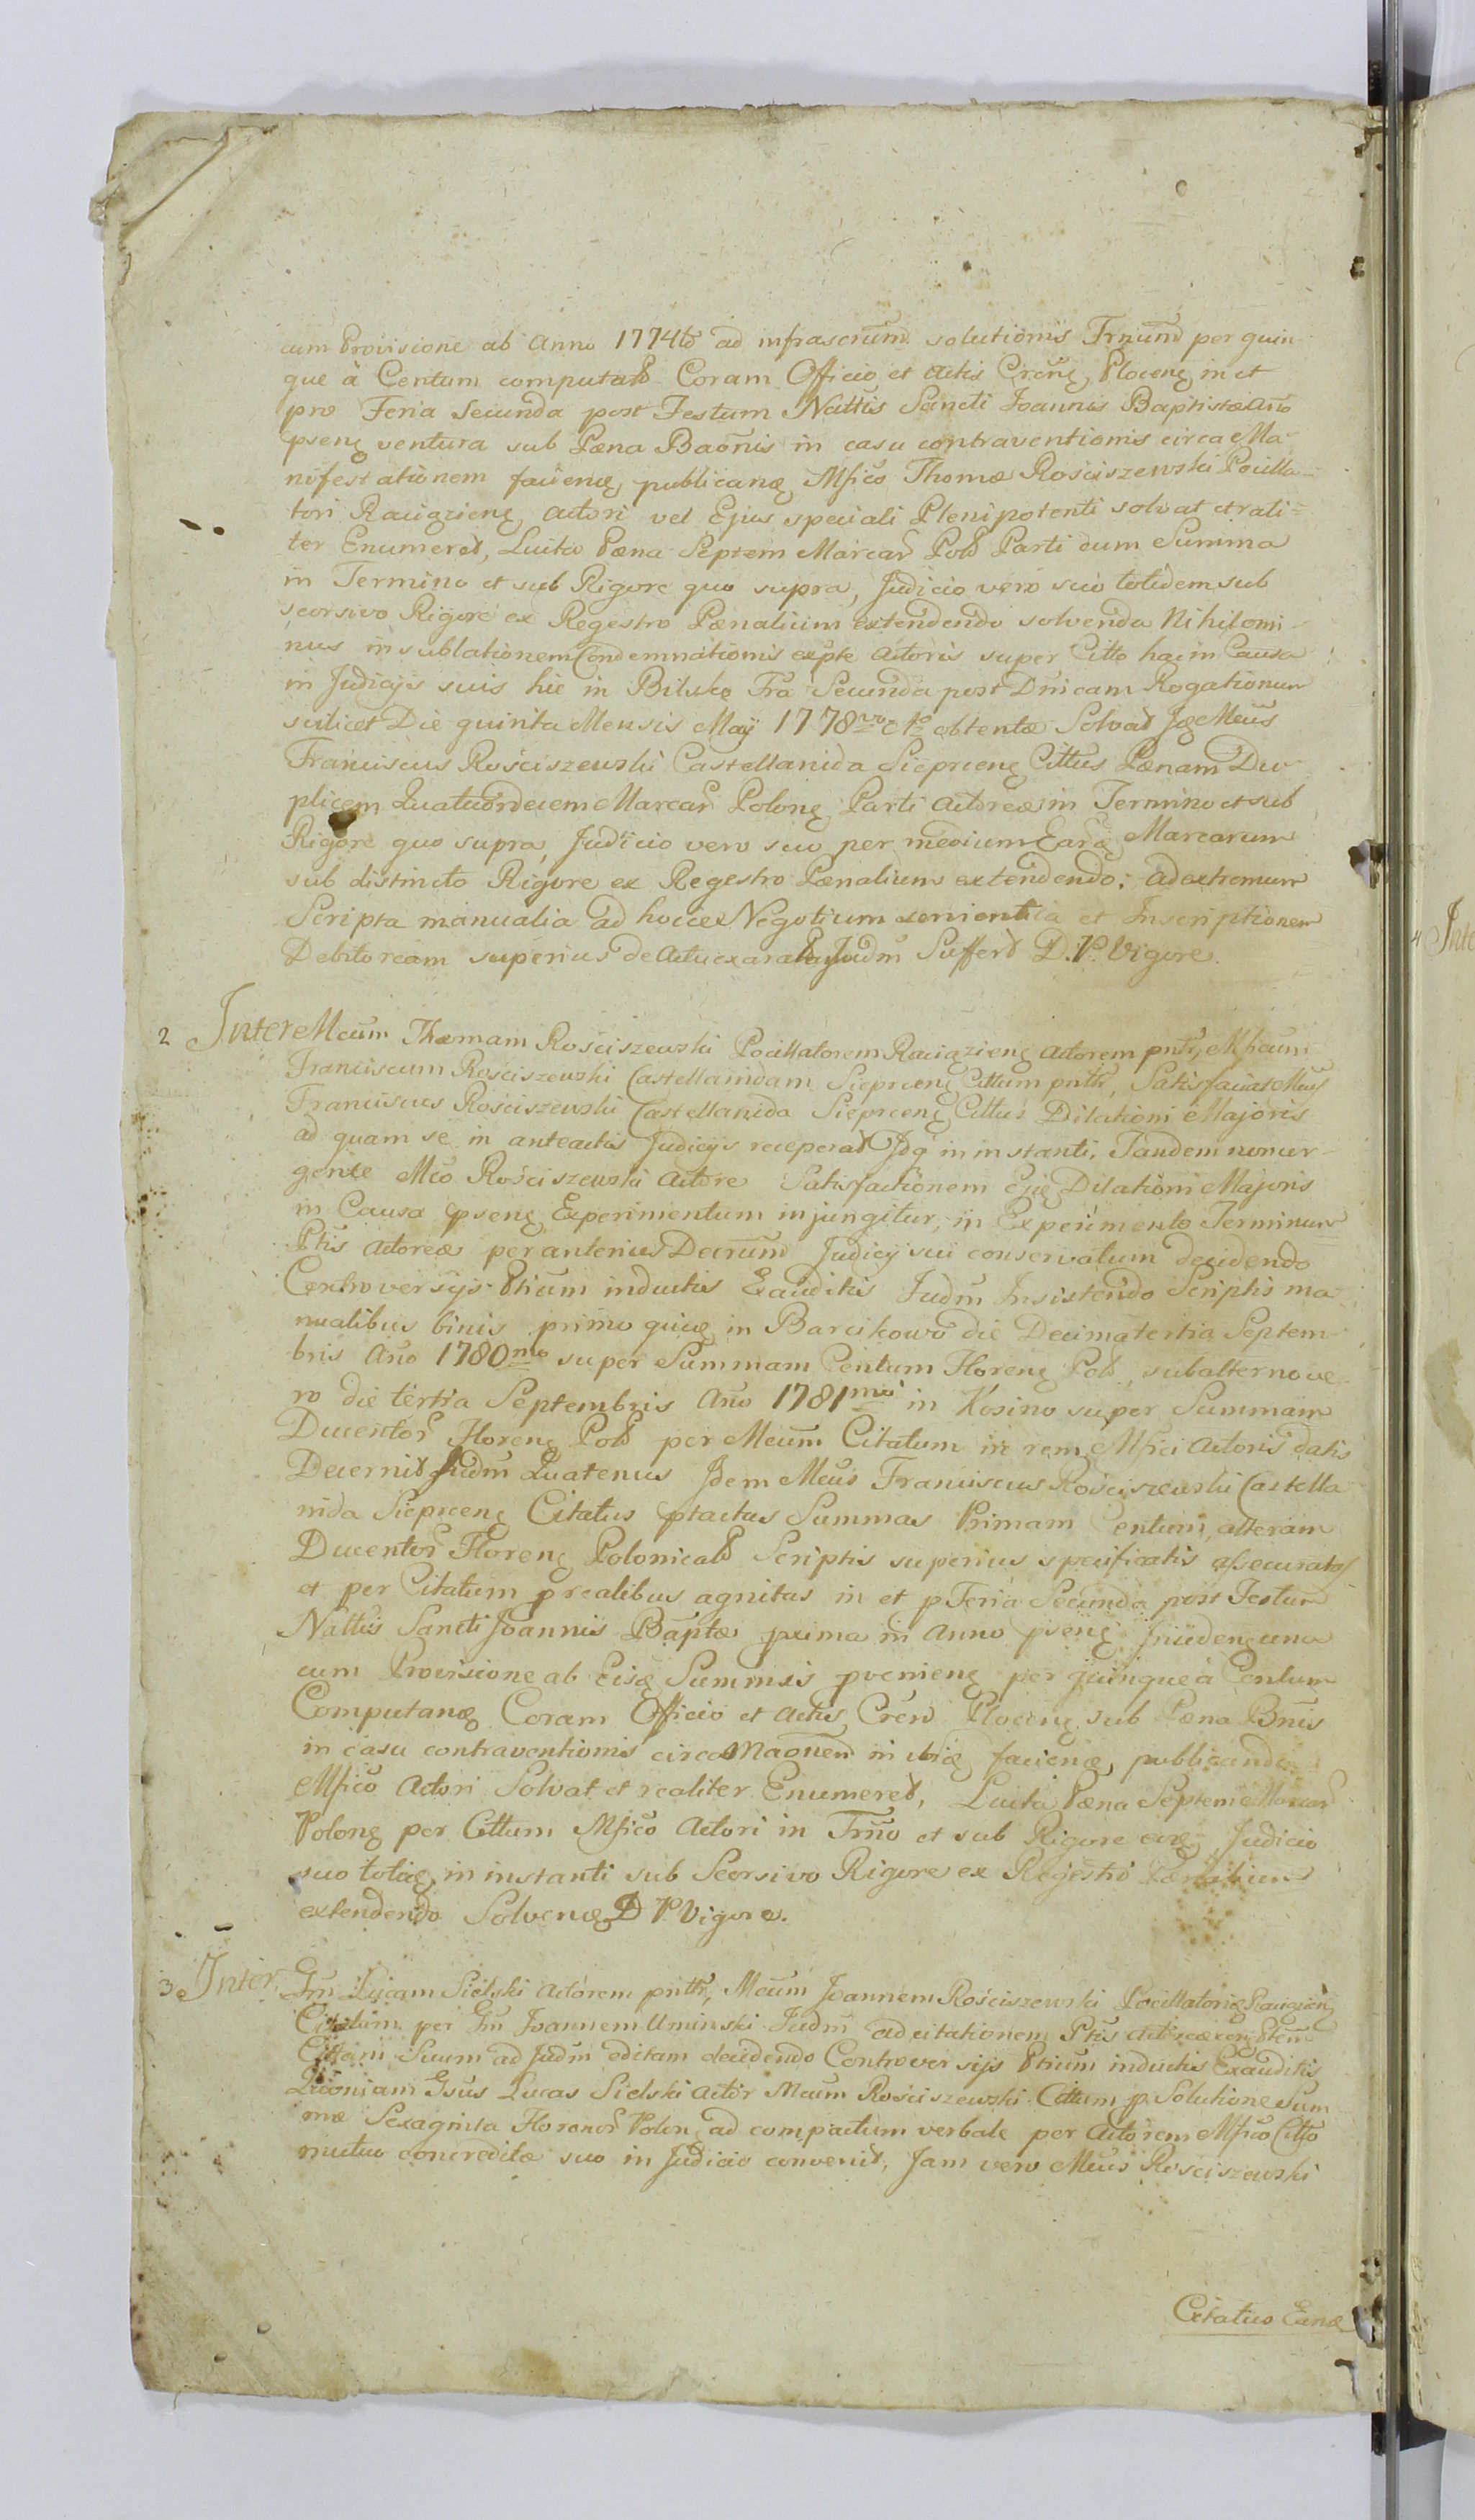 cum Provisione ab Anno 1774to ad infrascrum solutionis Trnum per quin-
que à Centum computatd Coram Officio et Actis Crenę Plocenę in et
pro Feria Secunda post Festum Nattis Sancti Joannis Baptistæ Año
psenę ventura sub Pæna Baonis in casu contraventionis circa Ma-
nifestationem facienę, publicanę Mfico Thomæ Rosciszewski Pocilla-
tori Raciązienę Actori vel Ejus speciali Plenipotenti solvat et rali-
ter Enumeret, Luita Pæna Septem Marcar Pold Parti cum Summa
in Termino et sub Rigore quo supra, Judicio vero suo totidem sub
seorsivo Rigore ex Regestro Pænalium extendendo solvenda Nihilomi-
nus in sublationem Condemnationis expte Actoris super Citto hac in Causa
in Judicijs suis hic in Bilsko Fra Secunda post Dnicam Rogationum
scilicet Die quinta Mensis Maÿ 1778vo Ao obtentæ Solvat Jdę Meus
Franciscus Rościszewski Castellanida Siepreenę Cittus Pænam Du-
plicem Quatuordecem Marcar Polonę Parti Actoreæ in Termino et sub
Rigore quo supra, Judicio vero suo per medium Earę Marcarum
sub distincto Rigore ex Regestro Pænalium extendendo. Ad extremum
Scripta manualia ad hocce Negotium servientia et Inscriptionem
Debitoream superius de Actu exarata Judm Suffert D. P. Vigore.
2 Inter Mcum Thomam Rościszewski Pocillatorem Raciązienę Actorem pntr, Mficum
Franciscum Rościszewski Castellanidam Siepreenę Cittum pntr, Satisfaciat Meus
Franciscus Rościszewski Castellanida Siepreenę Cittus Dilationi Majoris
ad quam se in anteactis Judicijs receperat Jdq in instanti, Tandem non ur-
gente Mco Rościszewski Actore Satisfactionem Eję Dilationi Majoris
in Causa psenę Experimentum injungitur, in Experimento Terminum
Ptis Actoreæ per anterius Decrum Judicij sui conservatum decidendo
Controversijs Ptium inductis Exauditis Judm Insistendo Scriptis ma-
nualibus binis primo quię in Barcikowo die Decima tertia Septem-
bris Año 1780mo super Summam Centum Florenę Pold, subalterno ve-
ro die tertia Septembris Año 1781mo in Kosino super Summam
Ducentor Florenę Pold per Mcum Citatum in rem Mfici Actoris datis
Decernit Judm Quatenus Jdem Mcus Franciscus Rościszewski Castella-
nida Siepreenę Citatus ptactas Summas Primam Centum, alteram
Ducentor Florenę Polonicald Scriptis superius specificatis assecuratas
et per Citatum p realibus agnitas in et p Feria Secunda post Festum
Nattis Sancti Joannis Baptæ prima in Anno psenę Incidenę una
cum Provisione ab Eisę Summis pvenienę per quinque à Centum
Computanę Coram Officio et Actis Crend Plocenę sub Pæna Bnis
in casu contraventionis circa Maonem in ibię facienę, publicando
Mfico Actori Solvat et realiter Enumeret, Luita Pæna Septem Marcar
Polonę per Cittum Mfico Actori in Trno et sub Rigore eoę, Judicio
suo totię in instanti sub Seorsivo Rigore ex Regestro Pænalium
extendendo Solvenę D P. Vigore.
3 Inter Gm Lucam Sielski Actorem pntr, Mcum Joannem Rościszewski Pocillatorię Raciązienę
Citatum per Gm Joannem Uminski Judm ad citationem Ptis Actoreæ
Cittam Suum ad Judm editam decidendo Controversijs Ptium inductis Exauditis
Quoniam Gsus Lucas Sielski Actor Mcum Rościszewski Cittum p Solutione Sum-
mæ Sexaginta Florenor Polonę ad compactum verbale per Actorem Mfico Citto
mutuo concreditæ suo in Judicio convenit, Jam vero Mcus Rościszewski
Citatus Eand